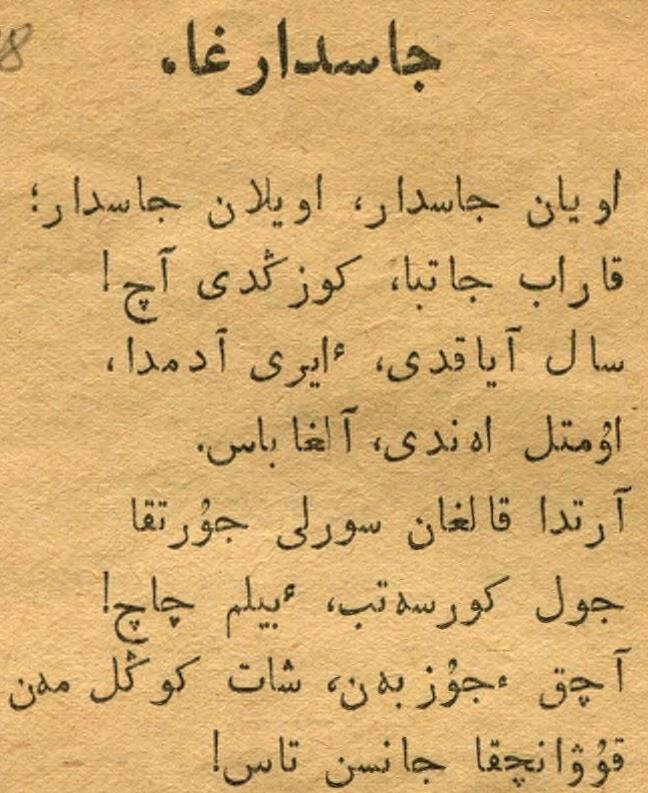 جاسدارغا.
اويان جاسدار، اويلان جاسدار؛
قاراب جاتبا، كوزڭدى آچ!
سال آياقدى، ءايرى آدمدا،
اۇمتل ەندى، آلغا باس.
آرتدا قالغان سورلى جۇرتقا
جول كورسەتب، ءبيلم چاچ!
آچق ءجۇز بەن، شات كوڭل مەن
قۇۋانچقا جانسن تاس!